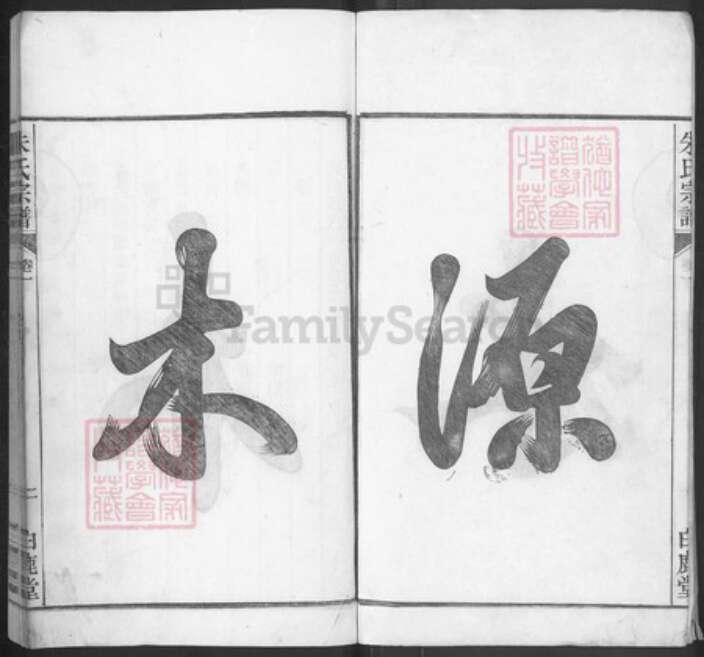 朱氏宗譜
卷
白鹿堂
源
猶他家
譜學會
特藏
木
猶他家
譜學會
特藏
朱氏宗譜
卷一
二
白鹿堂
FamilySearch